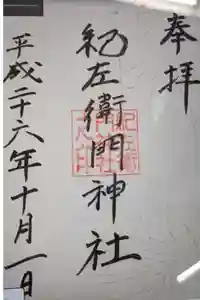 奉拝
紀左衛門神社
平成二十六年十月一日